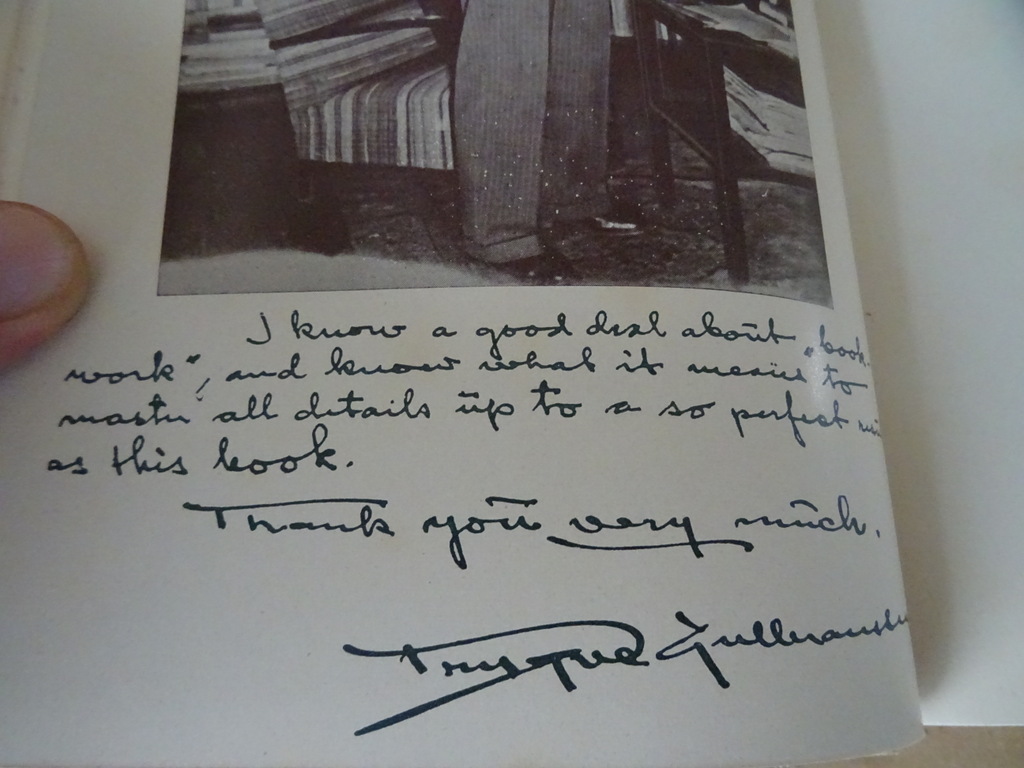 I know a good deal about „book-
work“, and know what it means to
master all details up to a so perfect
as this book.
Thank you very much.
Trygve Gulbranssen